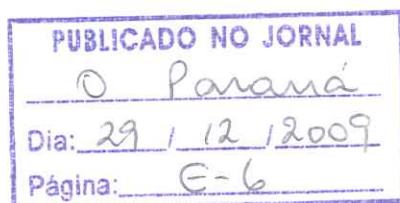 PUBLICADO NO JORNAL
O Paraná
Dia: 29 / 12 / 2009
Página: E-6